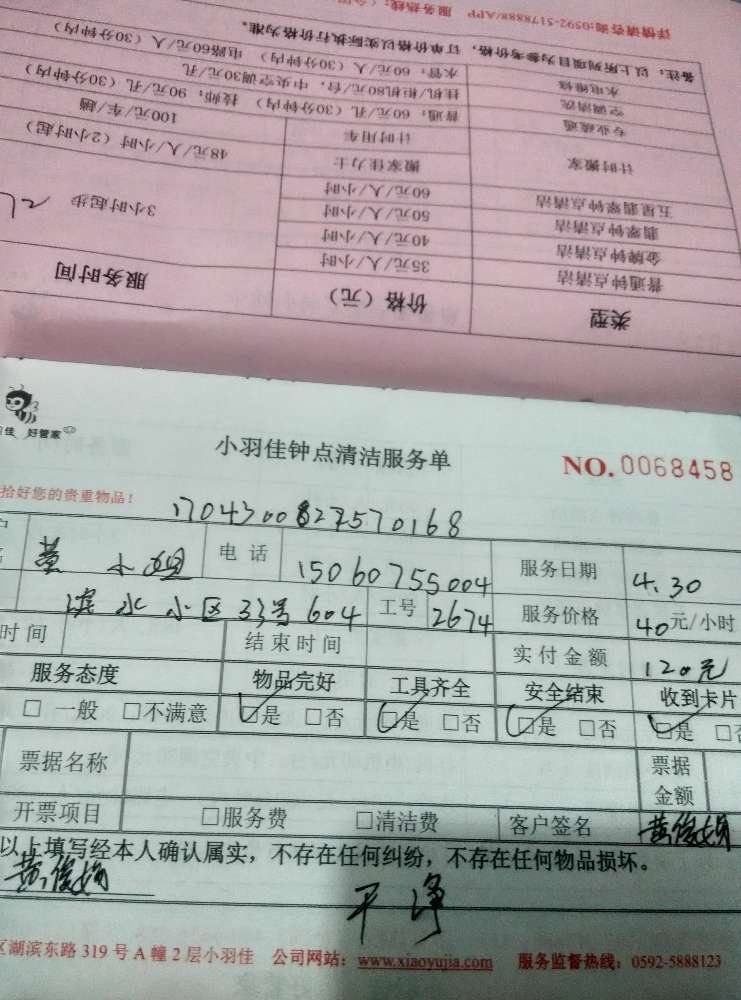 详情请咨询:0592-5178888/APP 服务热线:
备注：以上所列项目为参考价格，订单价格以实际执行价格为准。
水电维修 水管：60元/人（30分钟内） 电路60元/人（30分钟内）
空调清洗 挂机/柜机80元/台，中央空调30元/孔
专业疏通 普通：60元/孔（30分钟内） 技师：90元/孔（30分钟内）
计时搬家 计时用车 100元/车/趟
搬家佳力士 48元/人/小时（2小时起）
五星翡翠钟点清洁 60元/人/小时 3小时起步
翡翠钟点清洁 50元/人/小时
金牌钟点清洁 40元/人/小时
普通钟点清洁 35元/人/小时
类型 价格（元） 服务时间
佳 好管家
小羽佳钟点清洁服务单 NO.0068458
拾好您的贵重物品！
1704300827570168
黄小姐 电话 15060755004 服务日期 4.30
滨水小区33号604 工号 2674 服务价格 40元/小时
时间 结束时间 实付金额 120元
服务态度 物品完好 工具齐全 安全结束 收到卡片
□ 一般 □不满意 □是 □否 □是 □否 □是 □否 □是
票据名称 票据金额
开票项目 □服务费 □清洁费 客户签名 黄俊娟
以上填写经本人确认属实，不存在任何纠纷，不存在任何物品损坏。
黄俊娟 干净
区湖滨东路319号A幢2层小羽佳 公司网站：www.xiaoyujia.com 服务监督热线：0592-5888123